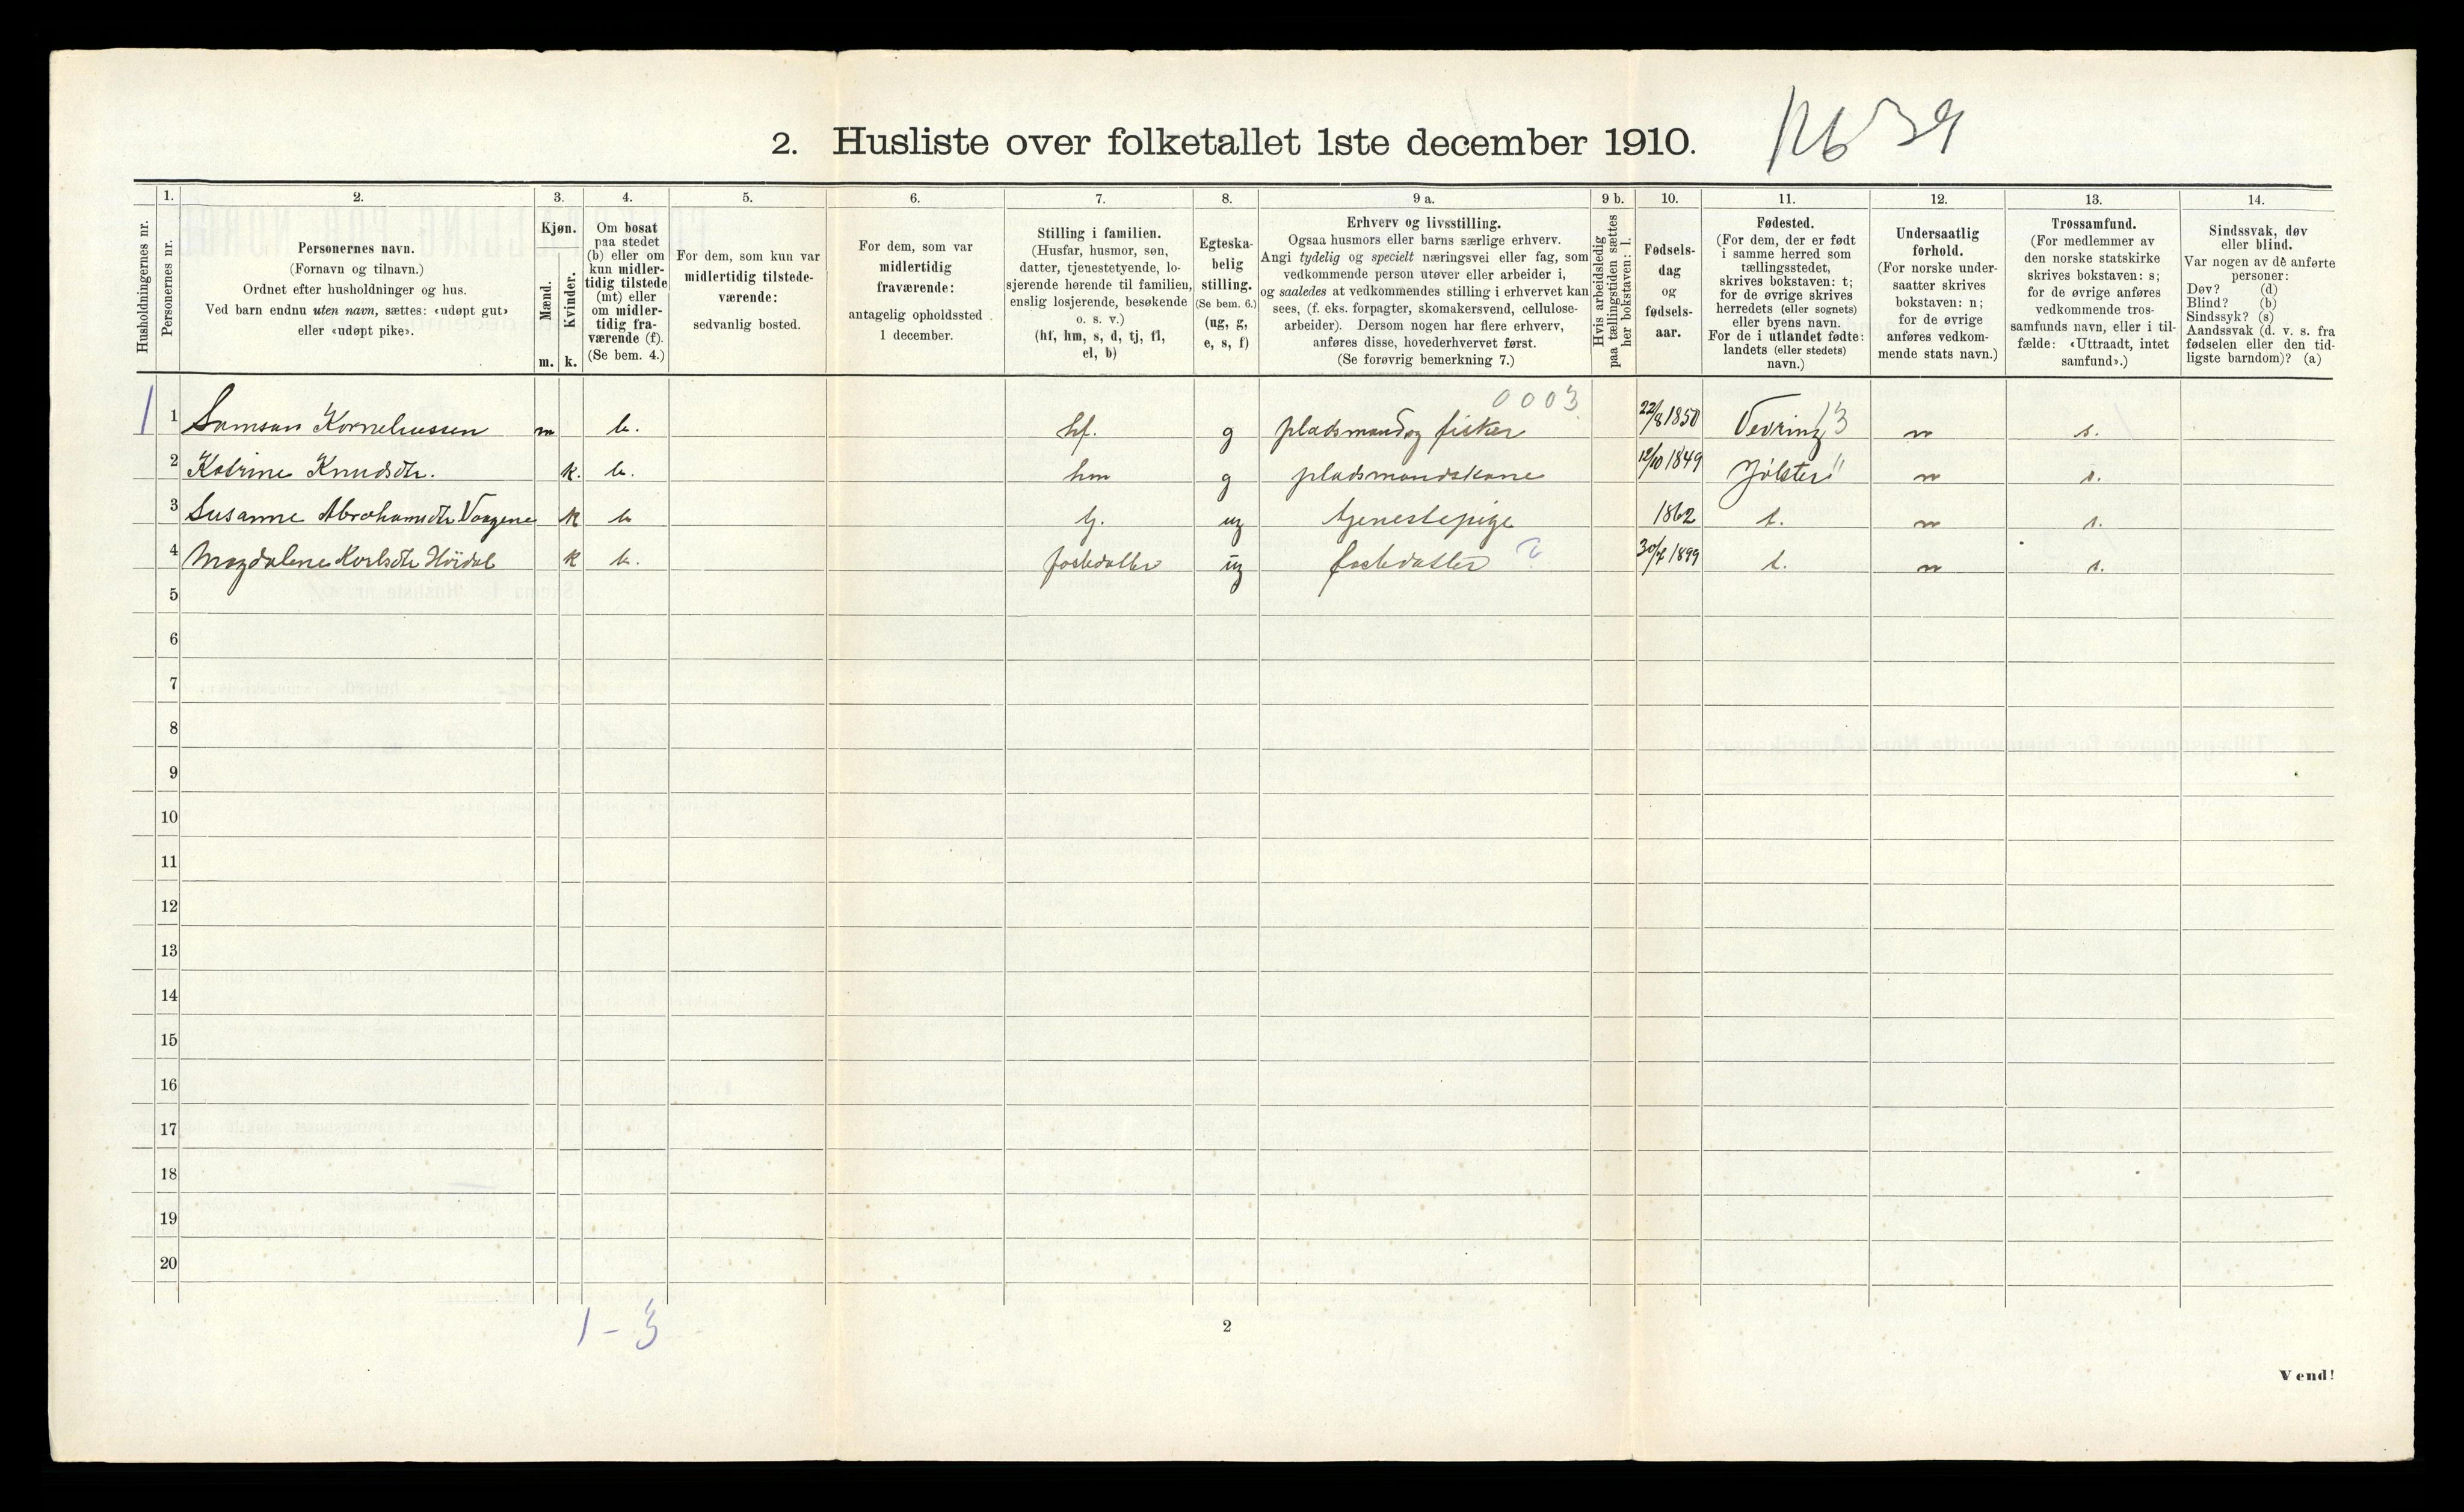 2. Husliste over folketallet 1ste december 1910.
1639
Husholdningernes nr.
1. Personernes nr.
2. Personernes navn.
(Fornavn og tilnavn.)
Ordnet efter husholdninger og hus.
Ved barn endnu uten navn, sættes: «udøpt gut»
eller «udøpt pike».
3. Kjøn.
Mænd. m.
Kvinder. k.
4. Om bosat
paa stedet
(b) eller om
kun midler-
tidig tilstede
(mt) eller
om midler-
tidig fra-
værende (f).
(Se bem. 4.)
5. For dem, som kun var
midlertidig tilstede-
værende:
sedvanlig bosted.
6. For dem, som var
midlertidig
fraværende:
antagelig opholdssted
1 december.
7. Stilling i familien.
(Husfar, husmor, søn,
datter, tjenestetyende, lo-
sjerende hørende til familien,
enslig losjerende, besøkende
o. s. v.)
(hf, hm, s, d, tj, fl,
el, b)
8. Egteska-
belig
stilling.
(Se bem. 6.)
(ug, g,
e, s, f)
9 a. Erhverv og livsstilling.
Ogsaa husmors eller barns særlige erhverv.
Angi tydelig og specielt næringsvei eller fag, som
vedkommende person utøver eller arbeider i,
og saaledes at vedkommendes stilling i erhvervet kan
sees, (f. eks. forpagter, skomakersvend, cellulose-
arbeider). Dersom nogen har flere erhverv,
anføres disse, hovederhvervet først.
(Se forøvrig bemerkning 7.)
9 b. Hvis arbeidsledig
paa tællingstiden sættes
her bokstaven: l.
10. Fødsels-
dag
og
fødsels-
aar.
11. Fødested.
(For dem, der er født
i samme herred som
tællingsstedet,
skrives bokstaven: t;
for de øvrige skrives
herredets (eller sognets)
eller byens navn.
For de i utlandet fødte:
landets (eller stedets)
navn.)
12. Undersaatlig
forhold.
(For norske under-
saatter skrives
bokstaven: n;
for de øvrige
anføres vedkom-
mende stats navn.)
13. Trossamfund.
(For medlemmer av
den norske statskirke
skrives bokstaven: s;
for de øvrige anføres
vedkommende tros-
samfunds navn, eller i til-
fælde: «Uttraadt, intet
samfund».)
14. Sindssvak, døv
eller blind.
Var nogen av de anførte
personer:
Døv? (d)
Blind? (b)
Sindssyk? (s)
Aandssvak (d. v. s. fra
fødselen eller den tid-
ligste barndom)? (a)
0003
1 1 Samson Korneliussen m b. hf. g pladsmand og fisker 22/8 1850 Vevring 13 n s.
2 Katrine Knudsdtr. k. b. hm g pladsmandskone 12/10 1849 Jølster 11 n s.
3 Susanne Abrahamsdtr Vaagene k b tj. ug tjenestepige 1862 t. n s.
4 Magdalene Karlsdtr Høidal k b. fosterdatter ug fosterdatter 2 1899 t. n s.
5
6
7
8
9
10
11
12
13
14
15
16
17
18
19
20
1 - 3
2
Vend!